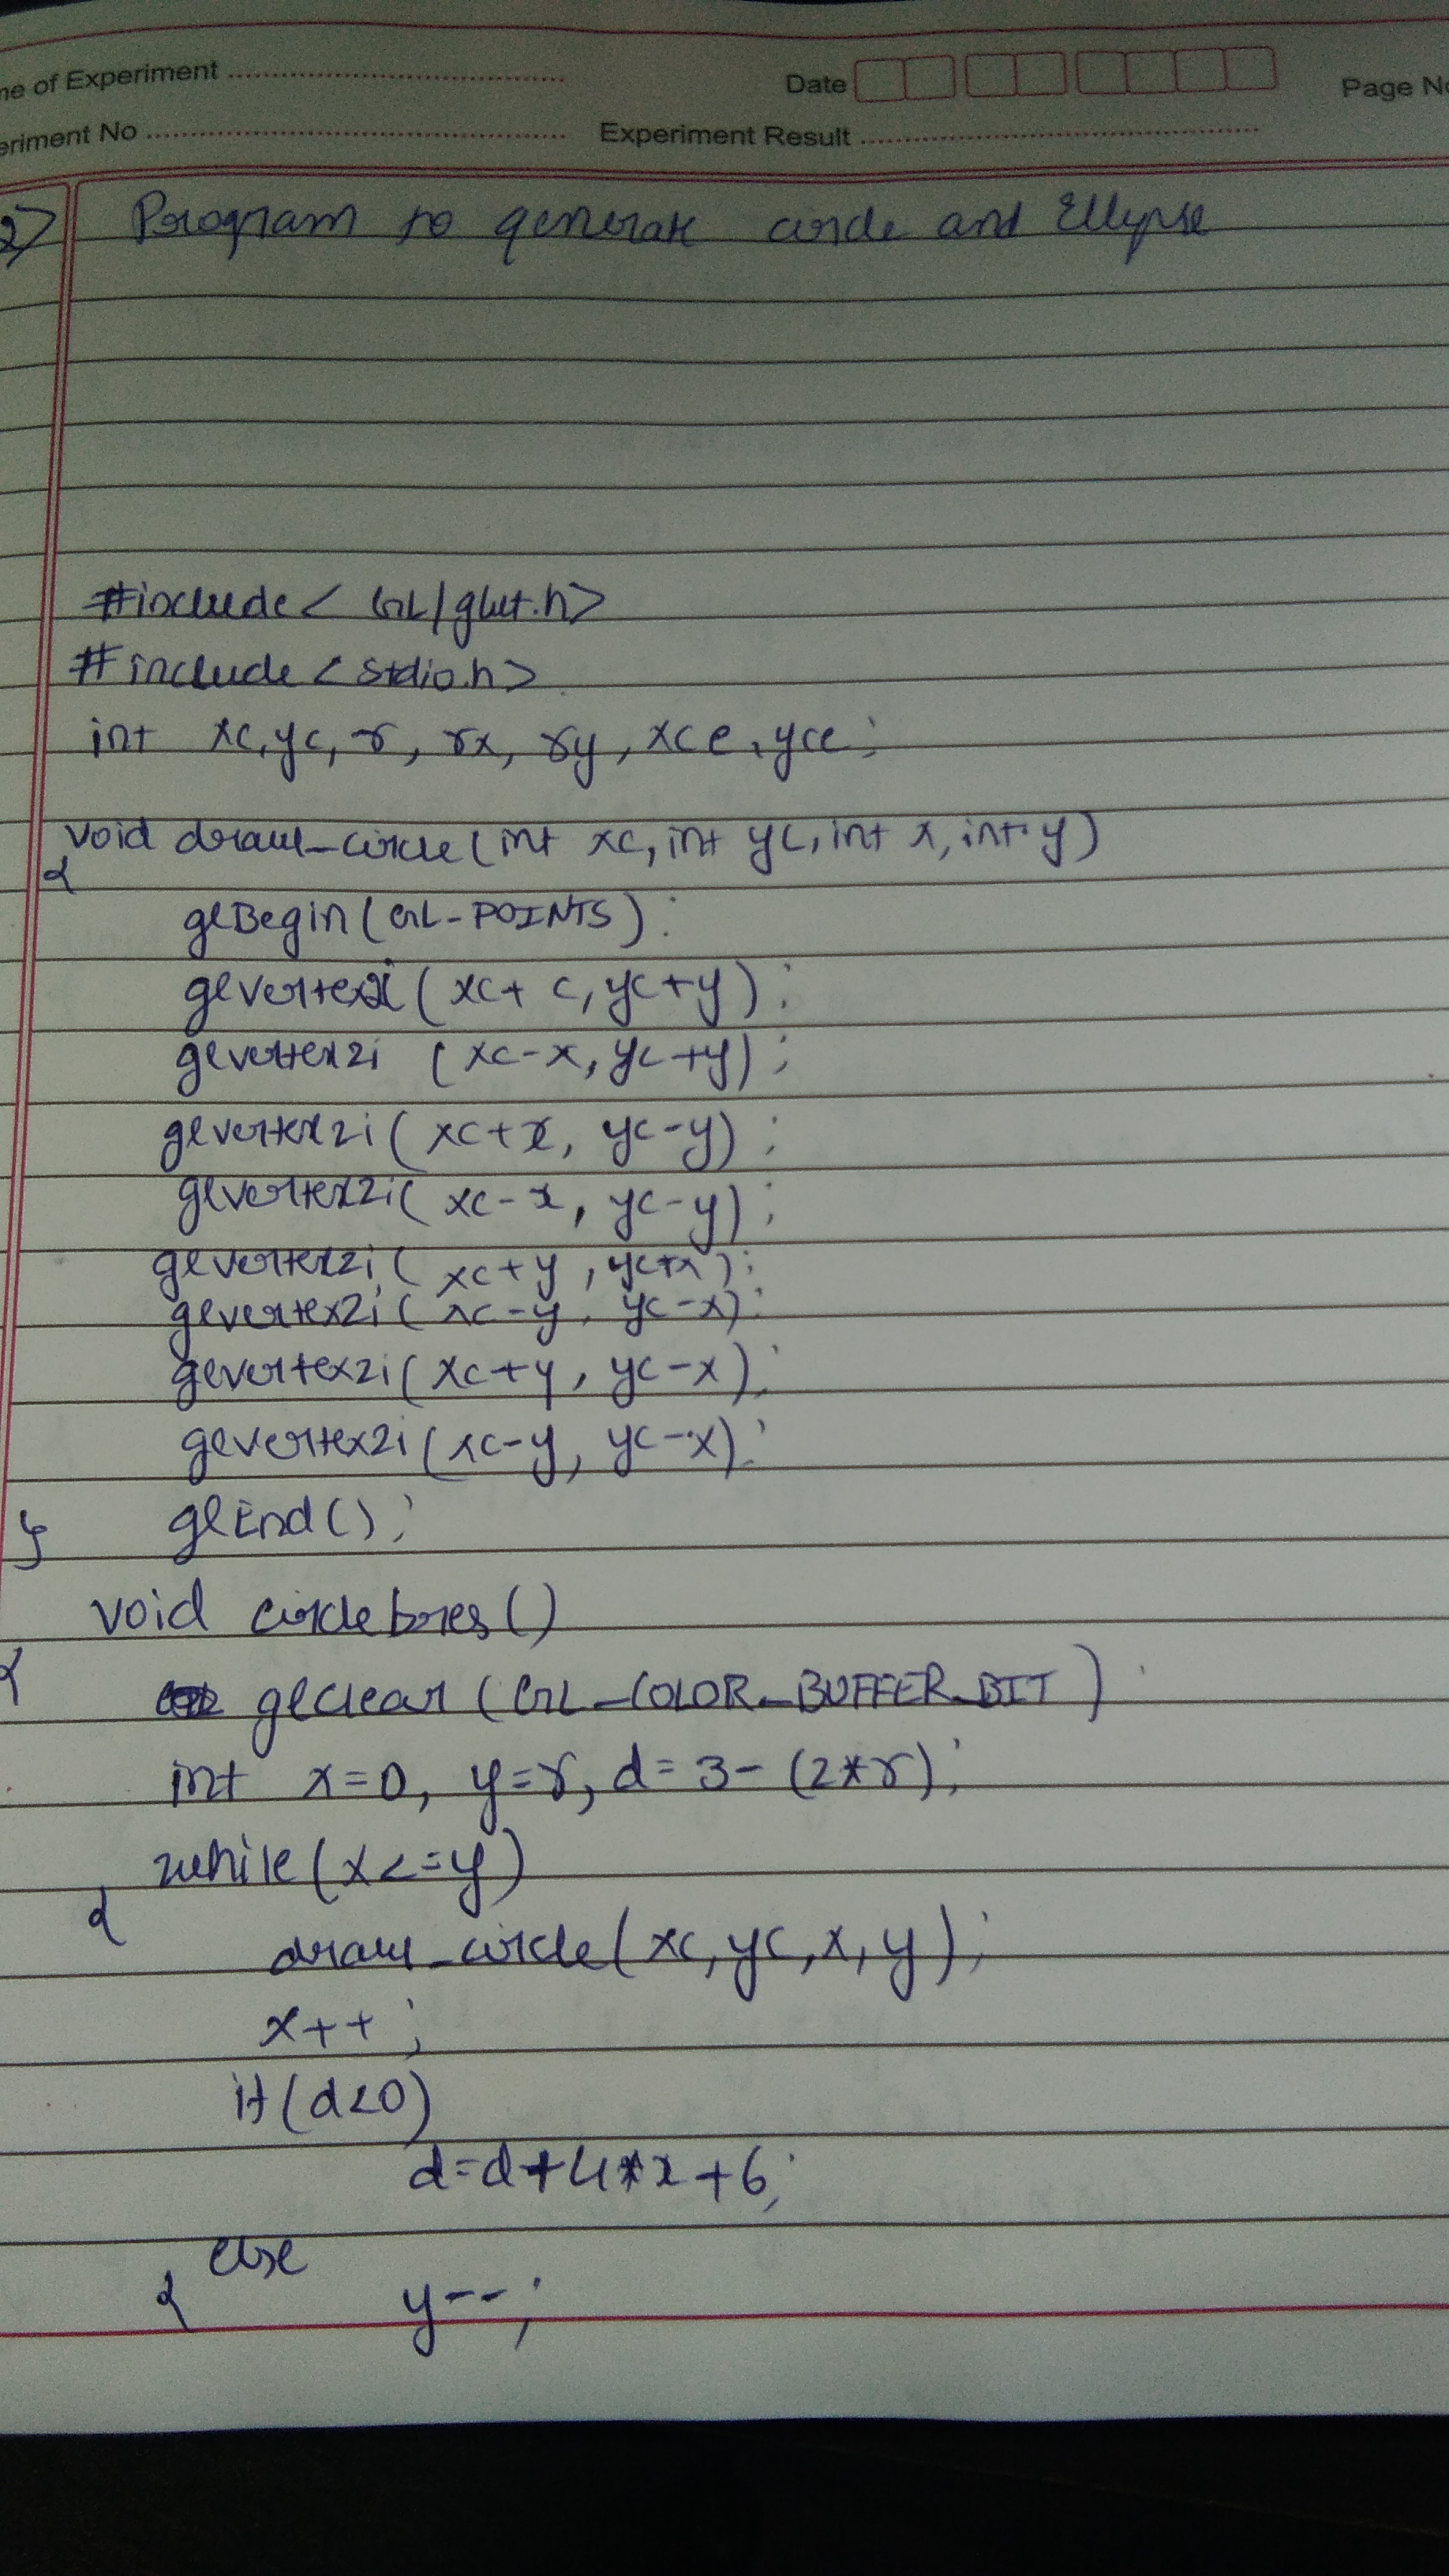 ne of Experiment
Date
Page No
eriment No
Experiment Result
2) Program to generate circle and Ellipse
#include< GL/glut.h>
#include<stdio.h>
int xc,yc,r, rx, ry, xce, yce;
void draw_circle(int xc, int yc, int x, int y)
{
glBegin(GL-POINTS);
glvertex2i(xc+c, yc+y);
glvertex2i (xc-x, yc+y);
glvertex2i(xc+x, yc-y);
glvertex2i(xc-x, yc-y);
glvertex2i(xc+y, yc+x);
glvertex2i(xc-y, yc-x);
glvertex2i(xc+y, yc-x);
glvertex2i(xc-y, yc-x);
glEnd();
}
void circlebres()
{
glclear(GL_COLOR_BUFFER_BIT);
int x=0, y=r, d=3-(2*r);
while(x<=y)
{
draw_circle(xc,yc,x,y);
x++;
if(d<0)
d=d+4*x+6;
else
{
y--;